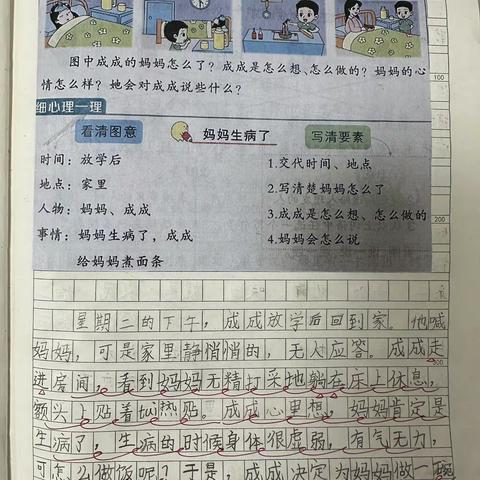 图中成成的妈妈怎么了？成成是怎么想、怎么做的？妈妈的心
情怎么样？她会对成成说些什么？
100
细心理一理
看清图意
妈妈生病了
写清要素
时间：放学后
1.交代时间、地点
地点：家里
2.写清楚妈妈怎么了
人物：妈妈、成成
3.成成是怎么想、怎么做的
200
事情：妈妈生病了，成成
4.妈妈会怎么说
给妈妈煮面条
星期二的下午，成成放学后回到家。他喊
妈妈，可是家里静悄悄的，无人应答。成成走
300
进房间，看到妈妈无精打采地躺在床上休息，
额头上贴着tuì热贴。成成心里想，妈妈肯定是
生病了，生病的时候身体很虚弱，有气无力，
可怎么做饭呢？于是，成成决定为妈妈做一碗